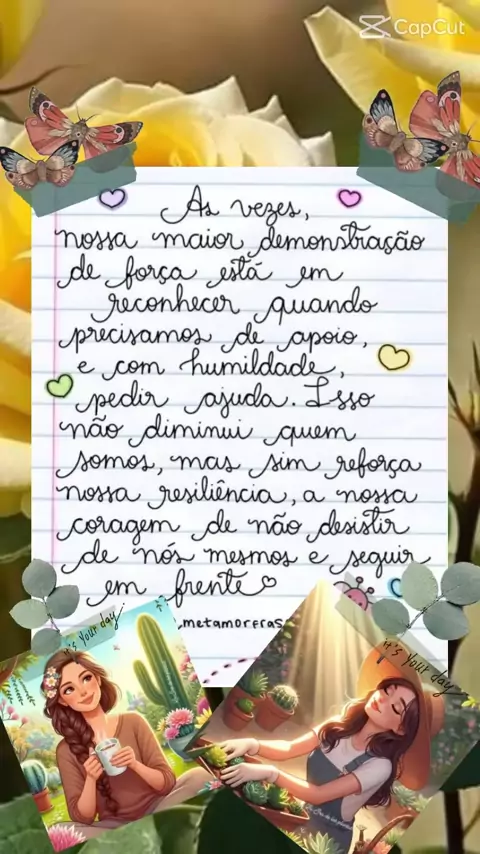 CapCut
Às vezes,
nossa maior demonstração
de força está em
reconhecer quando
precisamos de apoio,
e com humildade,
pedir ajuda. Isso
não diminui quem
somos, mas sim reforça
nossa resiliência, a nossa
coragem de não desistir
de nós mesmos e seguir
em frente
.metamorfras
it's your day
it's your day